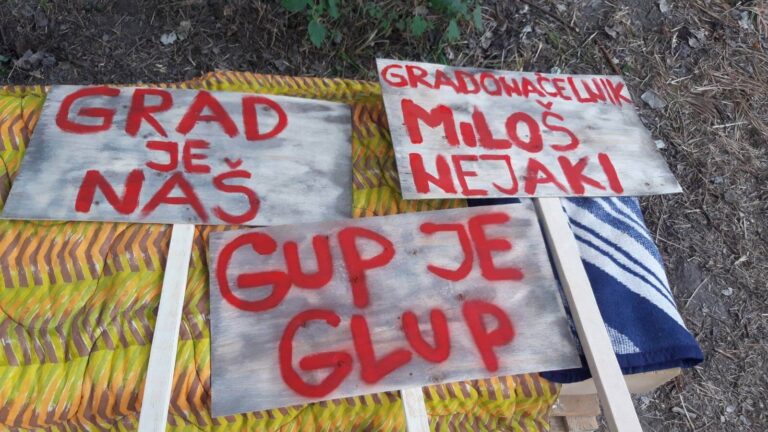 GRAD
JE
NAŠ
GRADONAČELNIK
MiLOŠ
NEJAKI
GUP JE
GLUP